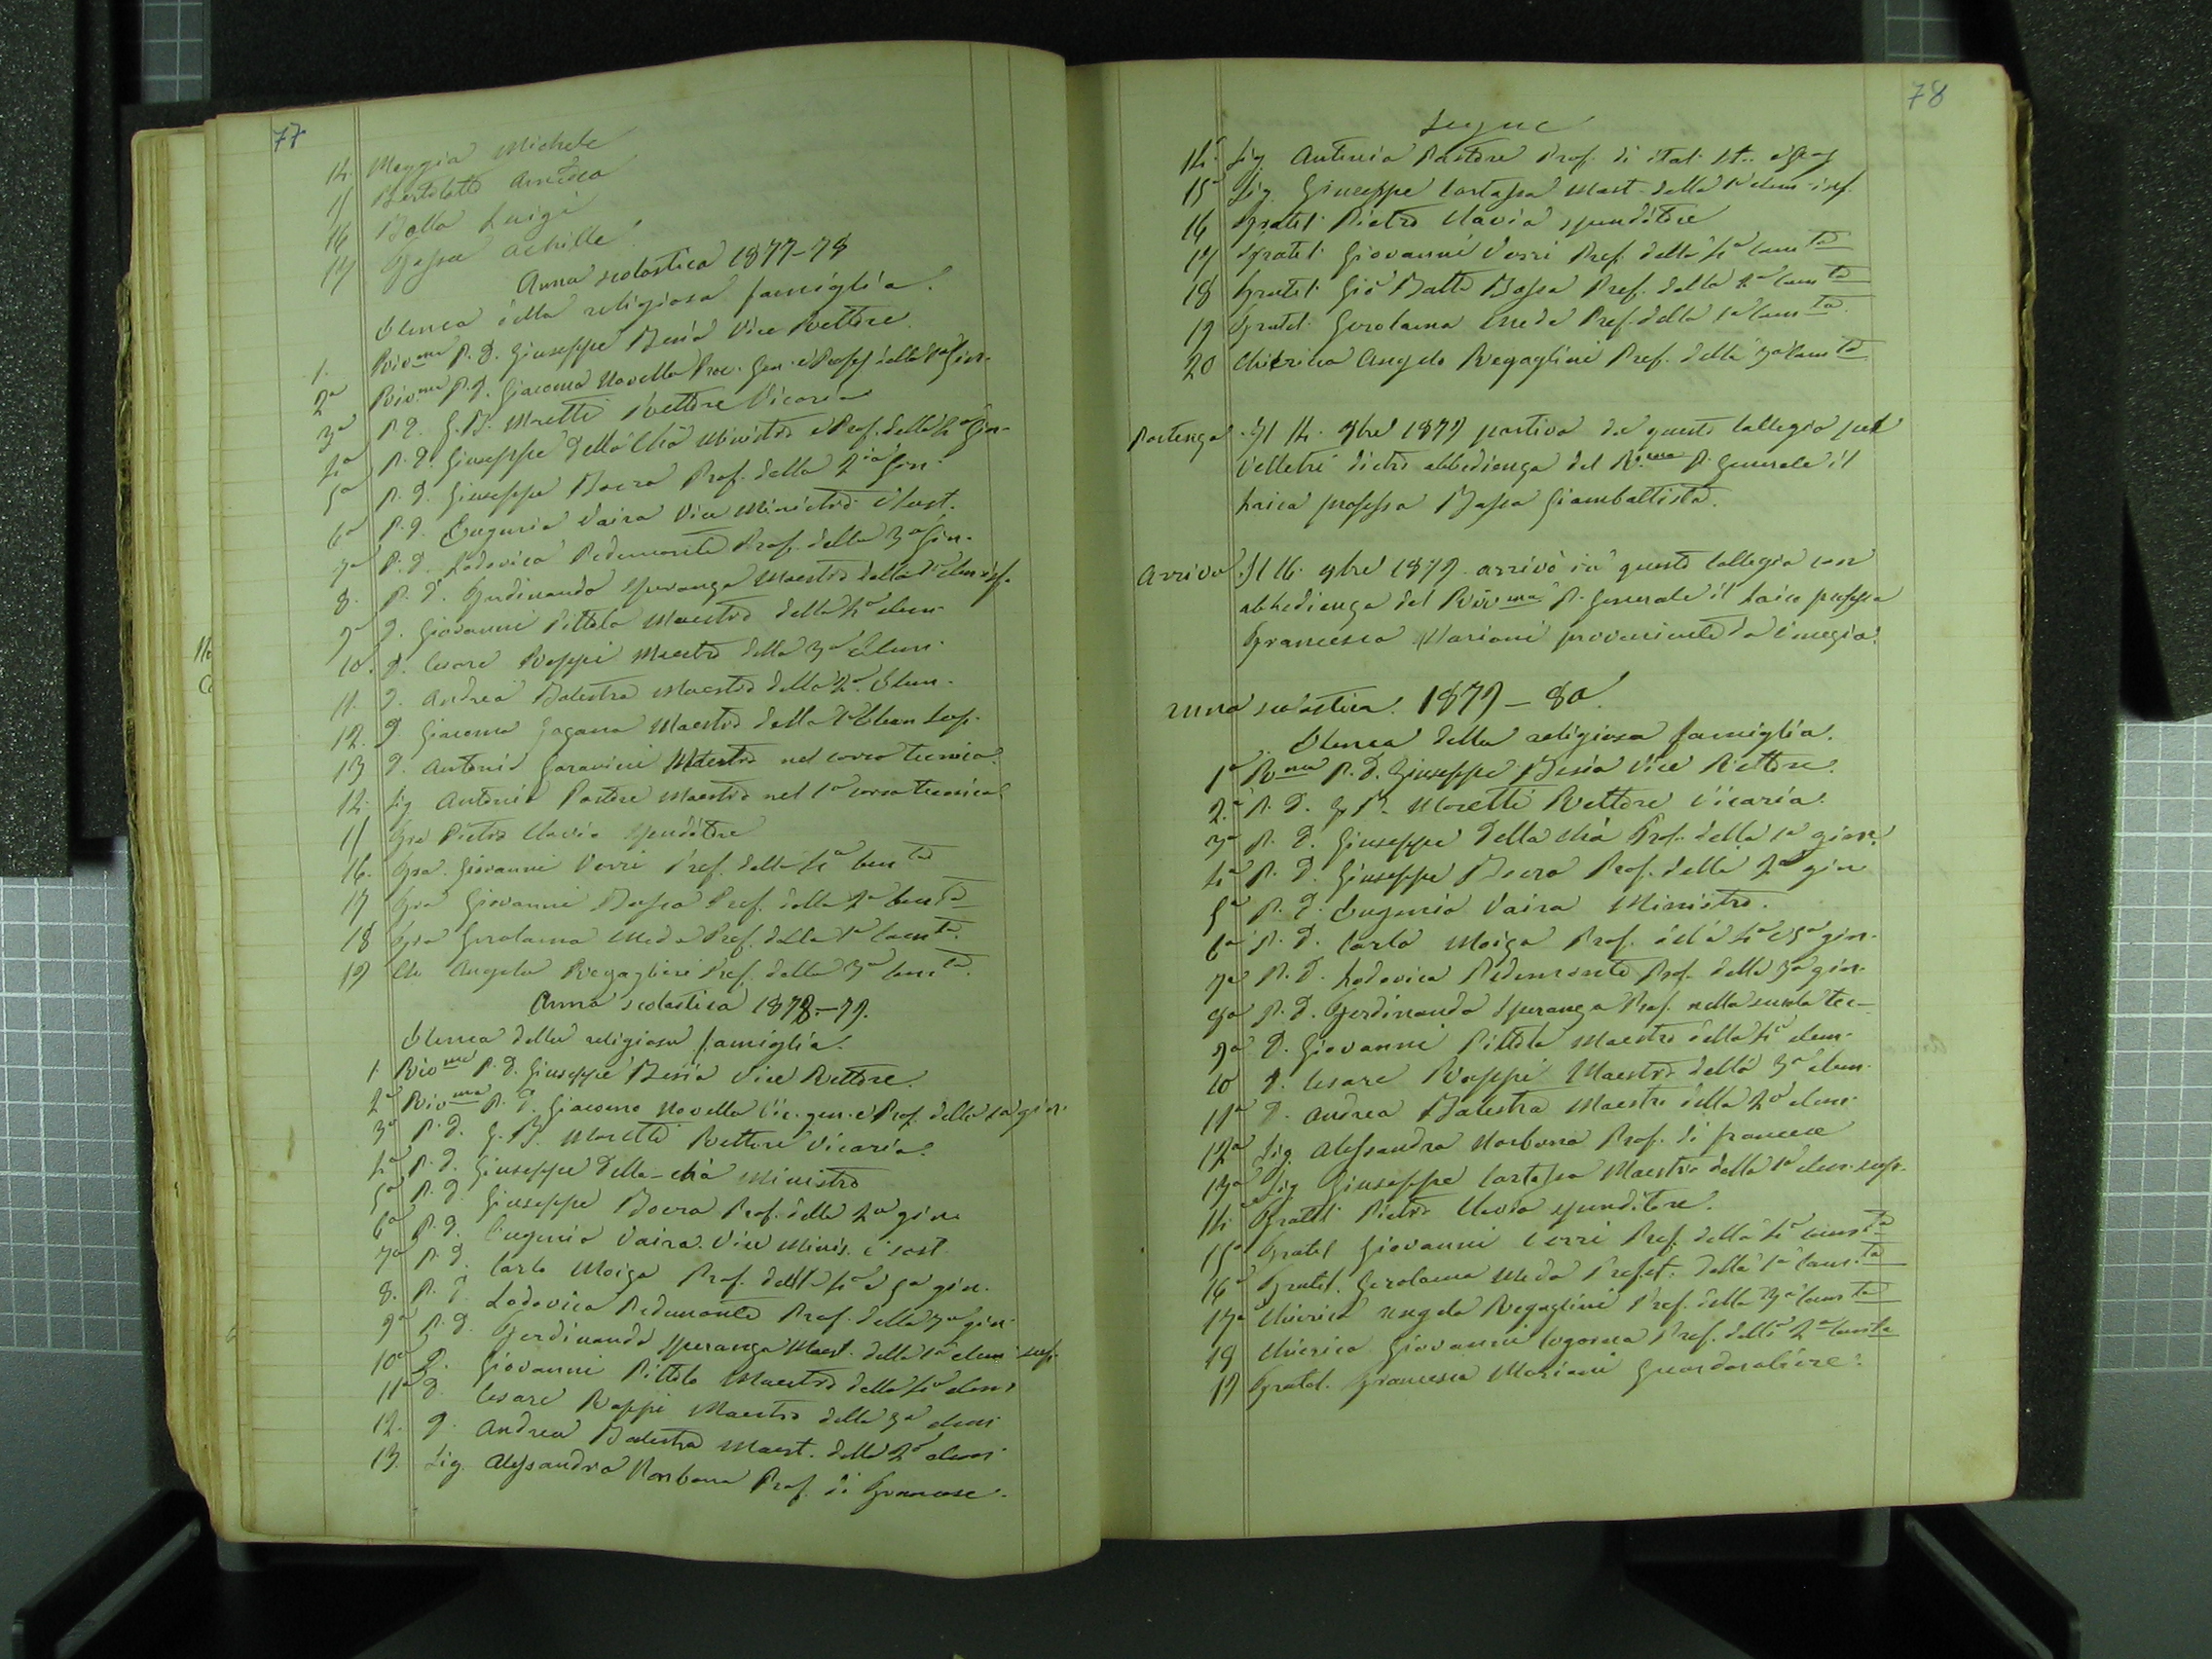 77
14. Moggia Michele
15 Bertolotto Amedeo
16 Balla Luigi
17 Bassa Achille
Anno scolastico 1877-78
Elenco della religiosa famiglia.
1. Rev.mo P. D. Giuseppe Besio Vice Rettore
2° Rev.mo P. D. Giacomo Novella Proc. Gen. e Prof. della 1a Gin.
3° P. D. G. B. Moretti Rettore Vicario
4° P. D. Giuseppe Della Chà Ministro e Prof. della 4a Gin.
5° P. D. Giuseppe Boero Prof. della 2a Gin.
6° P. D. Eugenio Vaira Vice Ministro e sost.
7° P. D. Lodovico Pedemonte Prof. della 3a Gin.
8. P. D. Ferdinando Speranza Maestro della 1a elem. inf.
9° D. Giovanni Pittola Maestro della 4a elem.
10. D. Cesare Roppi Maestro della 3a Elem.
11. D. Andrea Balestra Maestro della 2a Elem.
12. D. Giacomo Gaganna Maestro della 1a Elem. Sup.
13 D. Antonio Garavini Maestro nel corso tecnico.
14. Sig. Antonio Pastore Maestro nel 1° corso tecnico.
15 Fra Pietro Clavio Spenditore
16. Fra. Giovanni Verri Pref. della 4a Cam.ta
17 Fra Giovanni Bassa Pref. della 2a Cam.ta
18 Fra Gerolamo Meda Pref. della 1a Cam.ta
19 Ch. Angelo Regaglini Pref. della 3a Cam.ta
Anno scolastico 1878-79.
Elenco della religiosa famiglia.
1. Rev.mo P. D. Giuseppe Besio Vice Rettore.
2° Rev.mo P. D. Giacomo Novella Vic. gen. e Prof. della 1a gin.
3° P. D. G. B. Moretti Rettore Vicario.
4° P. D. Giuseppe Della-Chà Ministro
5° P. D. Giuseppe Boero Prof. della 2a gin.
6° P. D. Eugenio Vaira. Vice Minis. e sost.
7° P. D. Carlo Moiza Prof. della 4a e 5a gin.
8. P. D. Lodovico Pedemonte Prof. della 3a gin.
9° P. D. Ferdinando Speranza Maest. della 1a elem. sup.
10° D. Giovanni Pittola Maestro della 4a elem.
11° D. Cesare Roppi Maestro della 3a elem.
12. D. Andrea Balestra Maest. della 2a elem.
13. Sig. Alessandro Narbona Prof. di Francese.
78
Segue
14. Sig. Antonio Pastore Prof. di ital. st. e geog
15° Sig. Giuseppe Cartassa Maest. della 1a elem. inf.
16 Fratel. Pietro Clavio spenditore
17 Fratel. Giovanni Verri Pref. della 4a Cam.ta
18 Fratel. Gio Batta Bassa Pref. della 2a Cam.ta
19 Fratel. Gerolamo Meda Pref. della 1a Cam.ta
20 Chierico Angelo Regaglini Pref. della 3a Cam.ta
Partenza. Il 14. 9bre 1879 partiva da questo Collegio per
Velletri dietro abbedienza del R.mo P. Generale il
Laico professo Bassa Giambattista.
Arrivo. Il 16. 9bre 1879. arrivò in questo Collegio con
abbedienza del Rev.mo P. Generale il Laico professo
Francesco Mariani proveniente da Venezia.
Anno scolastico. 1879-80.
Elenco della religiosa famiglia.
1° R.mo P. D. Giuseppe Besio Vice Rettore.
2.° P. D. G. B. Moretti Rettore Vicario.
3° P. D. Giuseppe Della Chà Prof. della 1a gin.
4° P. D. Giuseppe Boero Prof. della 2a gin
5° P. D. Eugenio Vaira Ministro.
6° P. D. Carlo Moiza Prof. della 4a e 5a gin.
7° P. D. Lodovico Pedemonte Prof. della 3a gin.
8° P. D. Ferdinando Speranza Prof. nella scuola tec-
9° D. Giovanni Pittola Maestro della 4a elem.
10 D. Cesare Roppi Maestro della 3a elem.
11° D. Andrea Balestra Maestro della 2a elem.
12° Sig. Alessandro Narbona Prof. di francese
13° Sig. Giuseppe Cartassa Maestro della 1a elem. sup.
14. Fratel. Pietro Clavio spenditore.
15° Fratel Giovanni Verri Pref. della 4a Cam.ta
16° Fratel. Gerolamo Meda Prefet. della 1a Cam.ta
17° Chierico Angelo Regaglini Pref. della 3a Cam.ta
18 Chierico Giovanni Cogorno Pref. della 2a Cam.ta
19 Fratel. Francesco Mariani Guardarobiere.